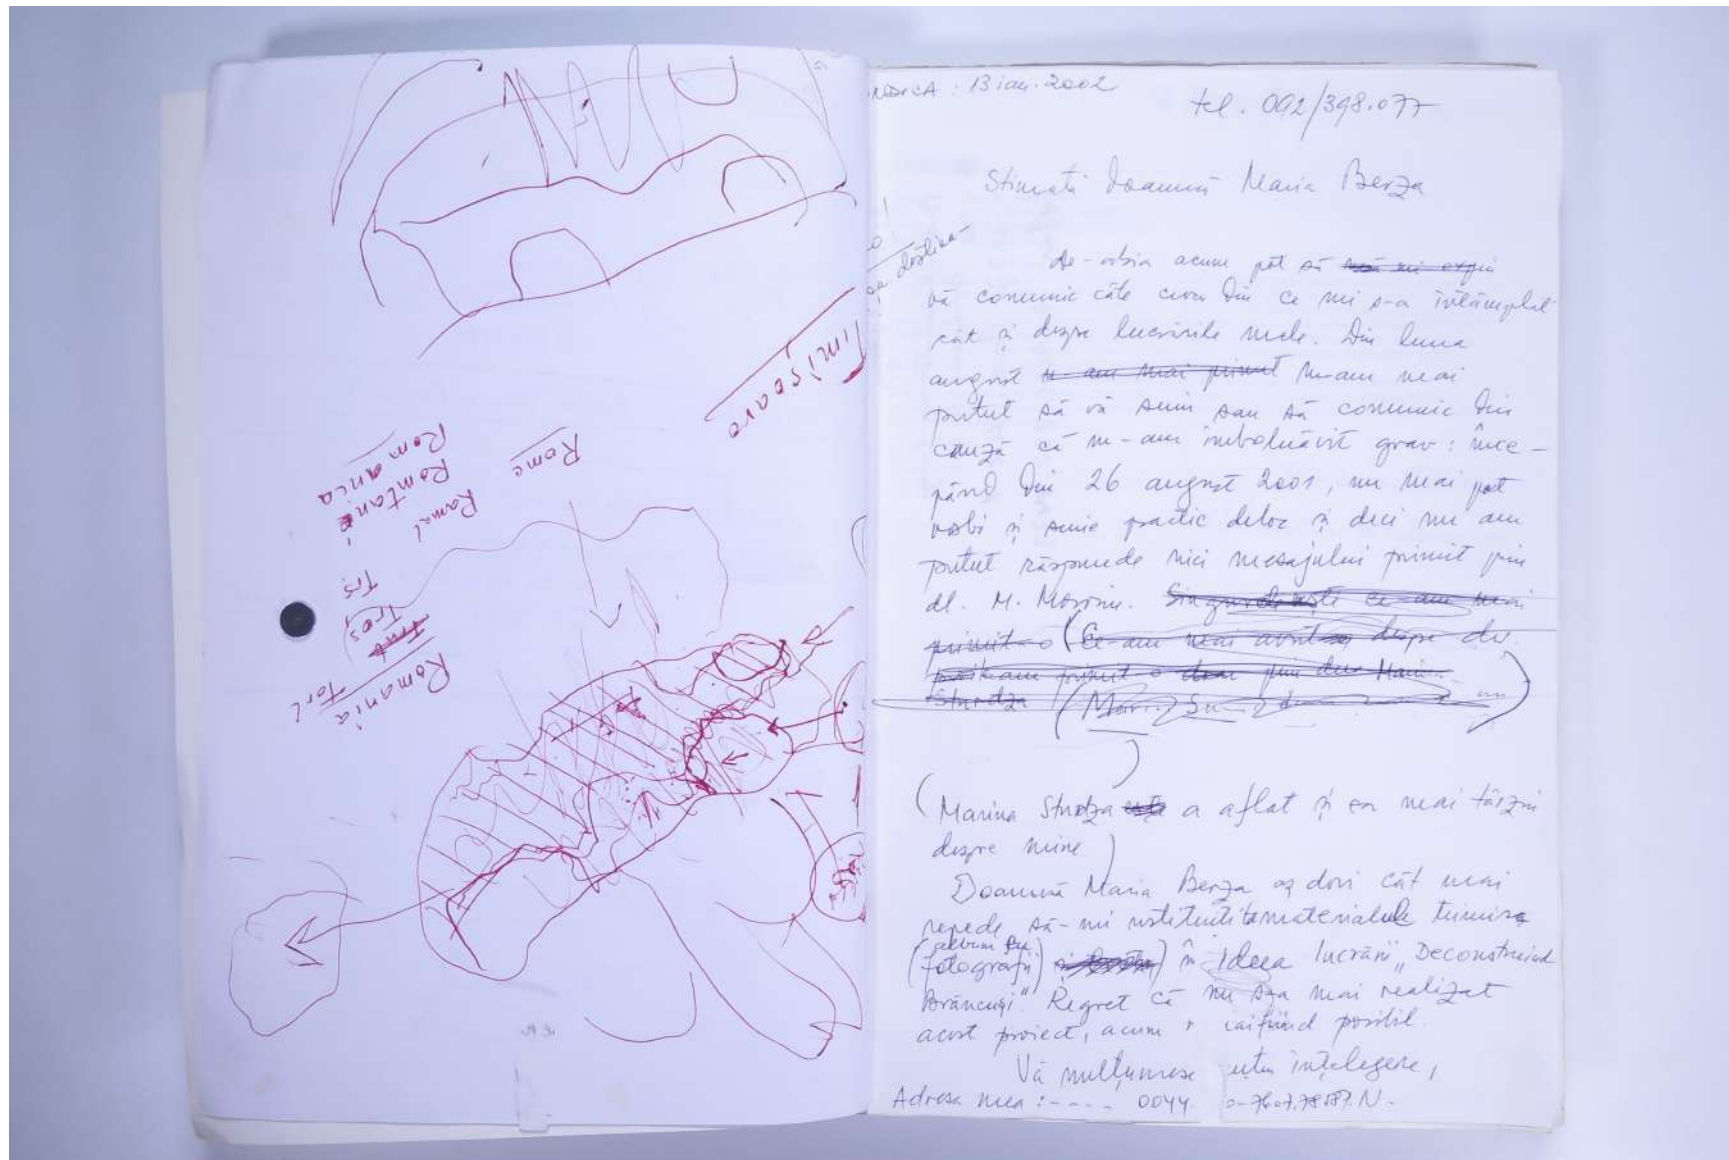 Timișoara
Rome
Romanca
Romtani
Ramal
Trs
Tres
Romania
Torl
13 ian. 2002
tel. 092/398.077
Stimată Doamnă Maria Berza
de-abia acum pot să
vă comunic câte ceva din ce mi s-a întâmplat
cât și despre lucrările mele. Din luna
august n-am mai primit n-am mai
putut să vă scriu sau să comunic din
cauză că m-am îmbolnăvit grav: înce-
pând din 26 august 2001, nu mai pot
vorbi și scrie practic deloc și deci nu am
putut răspunde nici mesajului primit prin
dl. M. ce am mai
primit-o (Ce-am mai despre
primit-o prin Marina
Sturdza
(Marina Sturdza a aflat și ea mai târziu
despre mine)
Doamnă Maria Berza aș dori cât mai
repede să-mi materialele trimise
(album cu
fotografii) în ideea lucrării "Deconstruind
Brâncuși". Regret că nu s-a mai realizat
acest proiect, acum posibil.
Vă mulțumesc înțelegere,
Adresa mea: ---- 0044